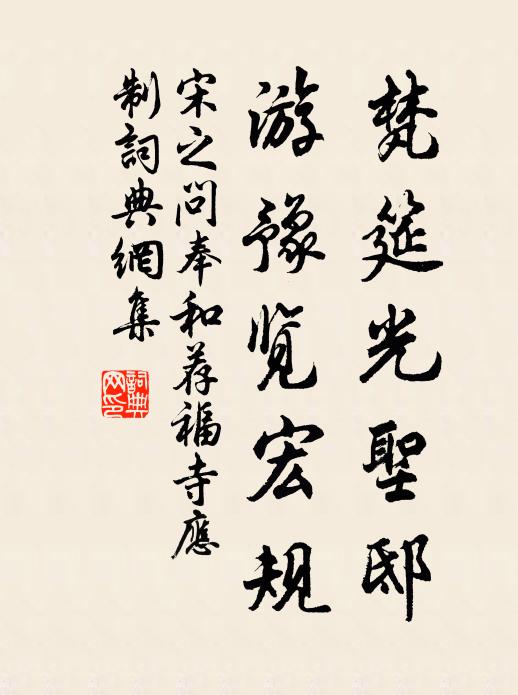 梵筵光聖邸
游豫览宏規
宋之问奉和荐福寺應
制詞典網集
詞典网印